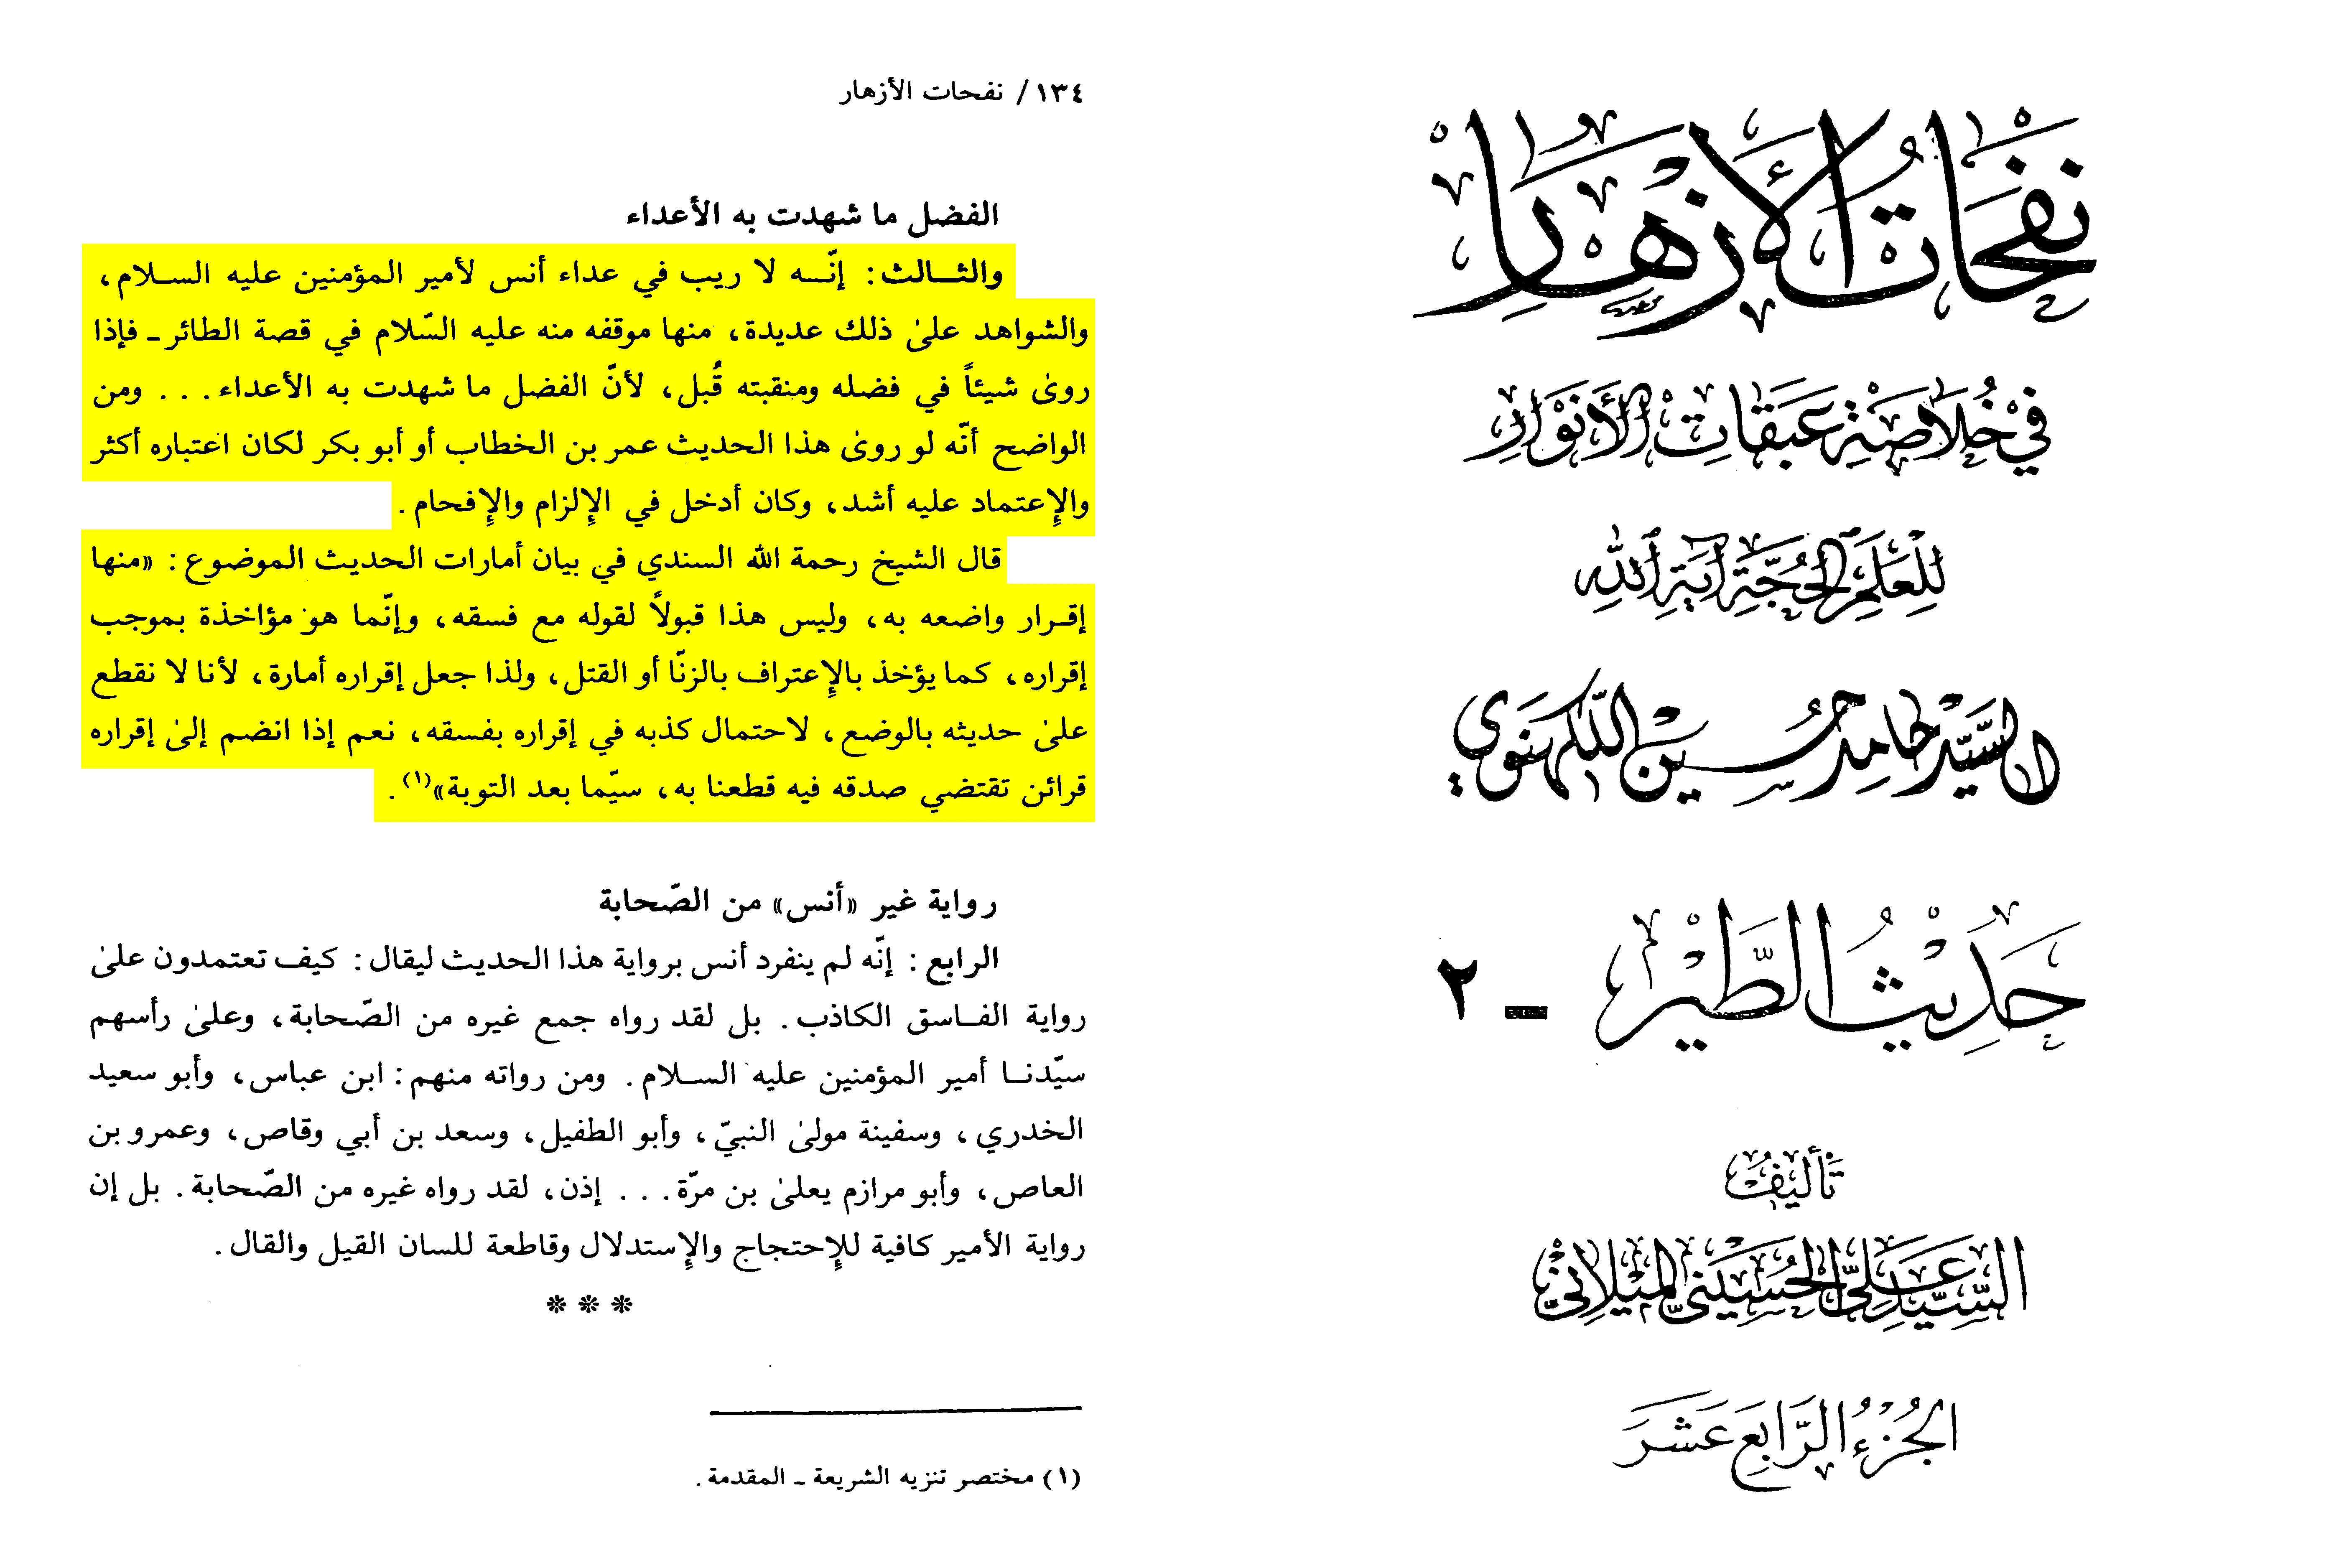 نفحات الأزهار
في خلاصة عبقات الأنوار
للعلم الحجة آية الله
السيد حامد حسين اللكهنوي
حديث الطير - ٢
تأليف
السيد علي الحسيني الميلاني
الجزء الرابع عشر
١٣٤ / نفحات الأزهار
الفضل ما شهدت به الأعداء
والثالث: إنّه لا ريب في عداء أنس لأمير المؤمنين عليه السلام،
والشواهد علىٰ ذلك عديدة، منها موقفه منه عليه السّلام في قصة الطائر ـ فإذا
روىٰ شيئاً في فضله ومنقبته قُبل، لأنّ الفضل ما شهدت به الأعداء... ومن
الواضح أنّه لو روىٰ هذا الحديث عمر بن الخطاب أو أبو بكر لكان اعتباره أكثر
والإعتماد عليه أشد، وكان أدخل في الإلزام والإفحام.
قال الشيخ رحمة الله السندي في بيان أمارات الحديث الموضوع: «منها
إقرار واضعه به، وليس هذا قبولاً لقوله مع فسقه، وإنّما هو مؤاخذة بموجب
إقراره، كما يؤخذ بالإعتراف بالزنّا أو القتل، ولذا جعل إقراره أمارة، لأنا لا نقطع
علىٰ حديثه بالوضع، لاحتمال كذبه في إقراره بفسقه، نعم إذا انضم إلىٰ إقراره
قرائن تقتضي صدقه فيه قطعنا به، سيّما بعد التوبة»(١).
رواية غير «أنس» من الصّحابة
الرابع: إنّه لم ينفرد أنس برواية هذا الحديث ليقال: كيف تعتمدون علىٰ
رواية الفاسق الكاذب. بل لقد رواه جمع غيره من الصّحابة، وعلىٰ رأسهم
سيّدنا أمير المؤمنين عليه السلام. ومن رواته منهم: ابن عباس، وأبو سعيد
الخدري، وسفينة مولىٰ النبيّ، وأبو الطفيل، وسعد بن أبي وقاص، وعمرو بن
العاص، وأبو مرازم يعلىٰ بن مرّة... إذن، لقد رواه غيره من الصّحابة. بل إن
رواية الأمير كافية للإحتجاج والإستدلال وقاطعة للسان القيل والقال.
***
(١) مختصر تنزيه الشريعة ـ المقدمة.